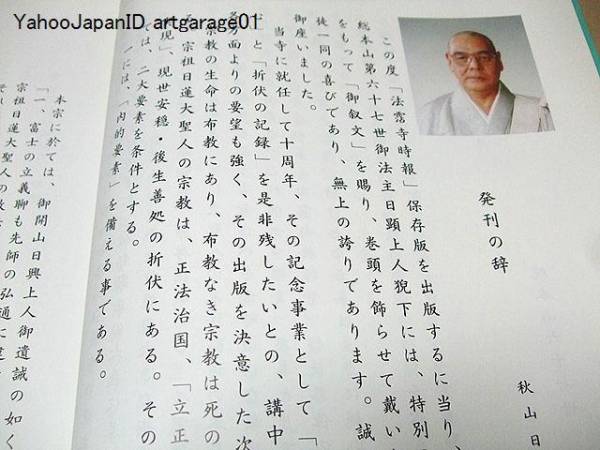 YahooJapanID artgarage01
発刊の辞
秋山日
この度「法霑寺時報」保存版を出版するに当り、
総本山第六十七世御法主日顕上人猊下には、特別
をもって「御叙文」を賜り、巻頭を飾らせて戴い
徒一同の喜びであり、無上の誇りであります。誠
御座いました。
当寺に就任して十周年、その記念事業として「
」と「折伏の記録」を是非残したいとの、講中
方面よりの要望も強く、その出版を決意した次
宗教の生命は布教にあり、布教なき宗教は死の
宗祖日蓮大聖人の宗教は、正法治国、「立正
現」、現世安穏・後生善処の折伏にある。その
ては、二大要素を条件とする。
一には、「内的要素」を備える事である。
本宗に於ては、御開山日興上人御遺誡の如く
「一、富士の立義聊も先師の弘通に違
宗祖日蓮大聖人の教